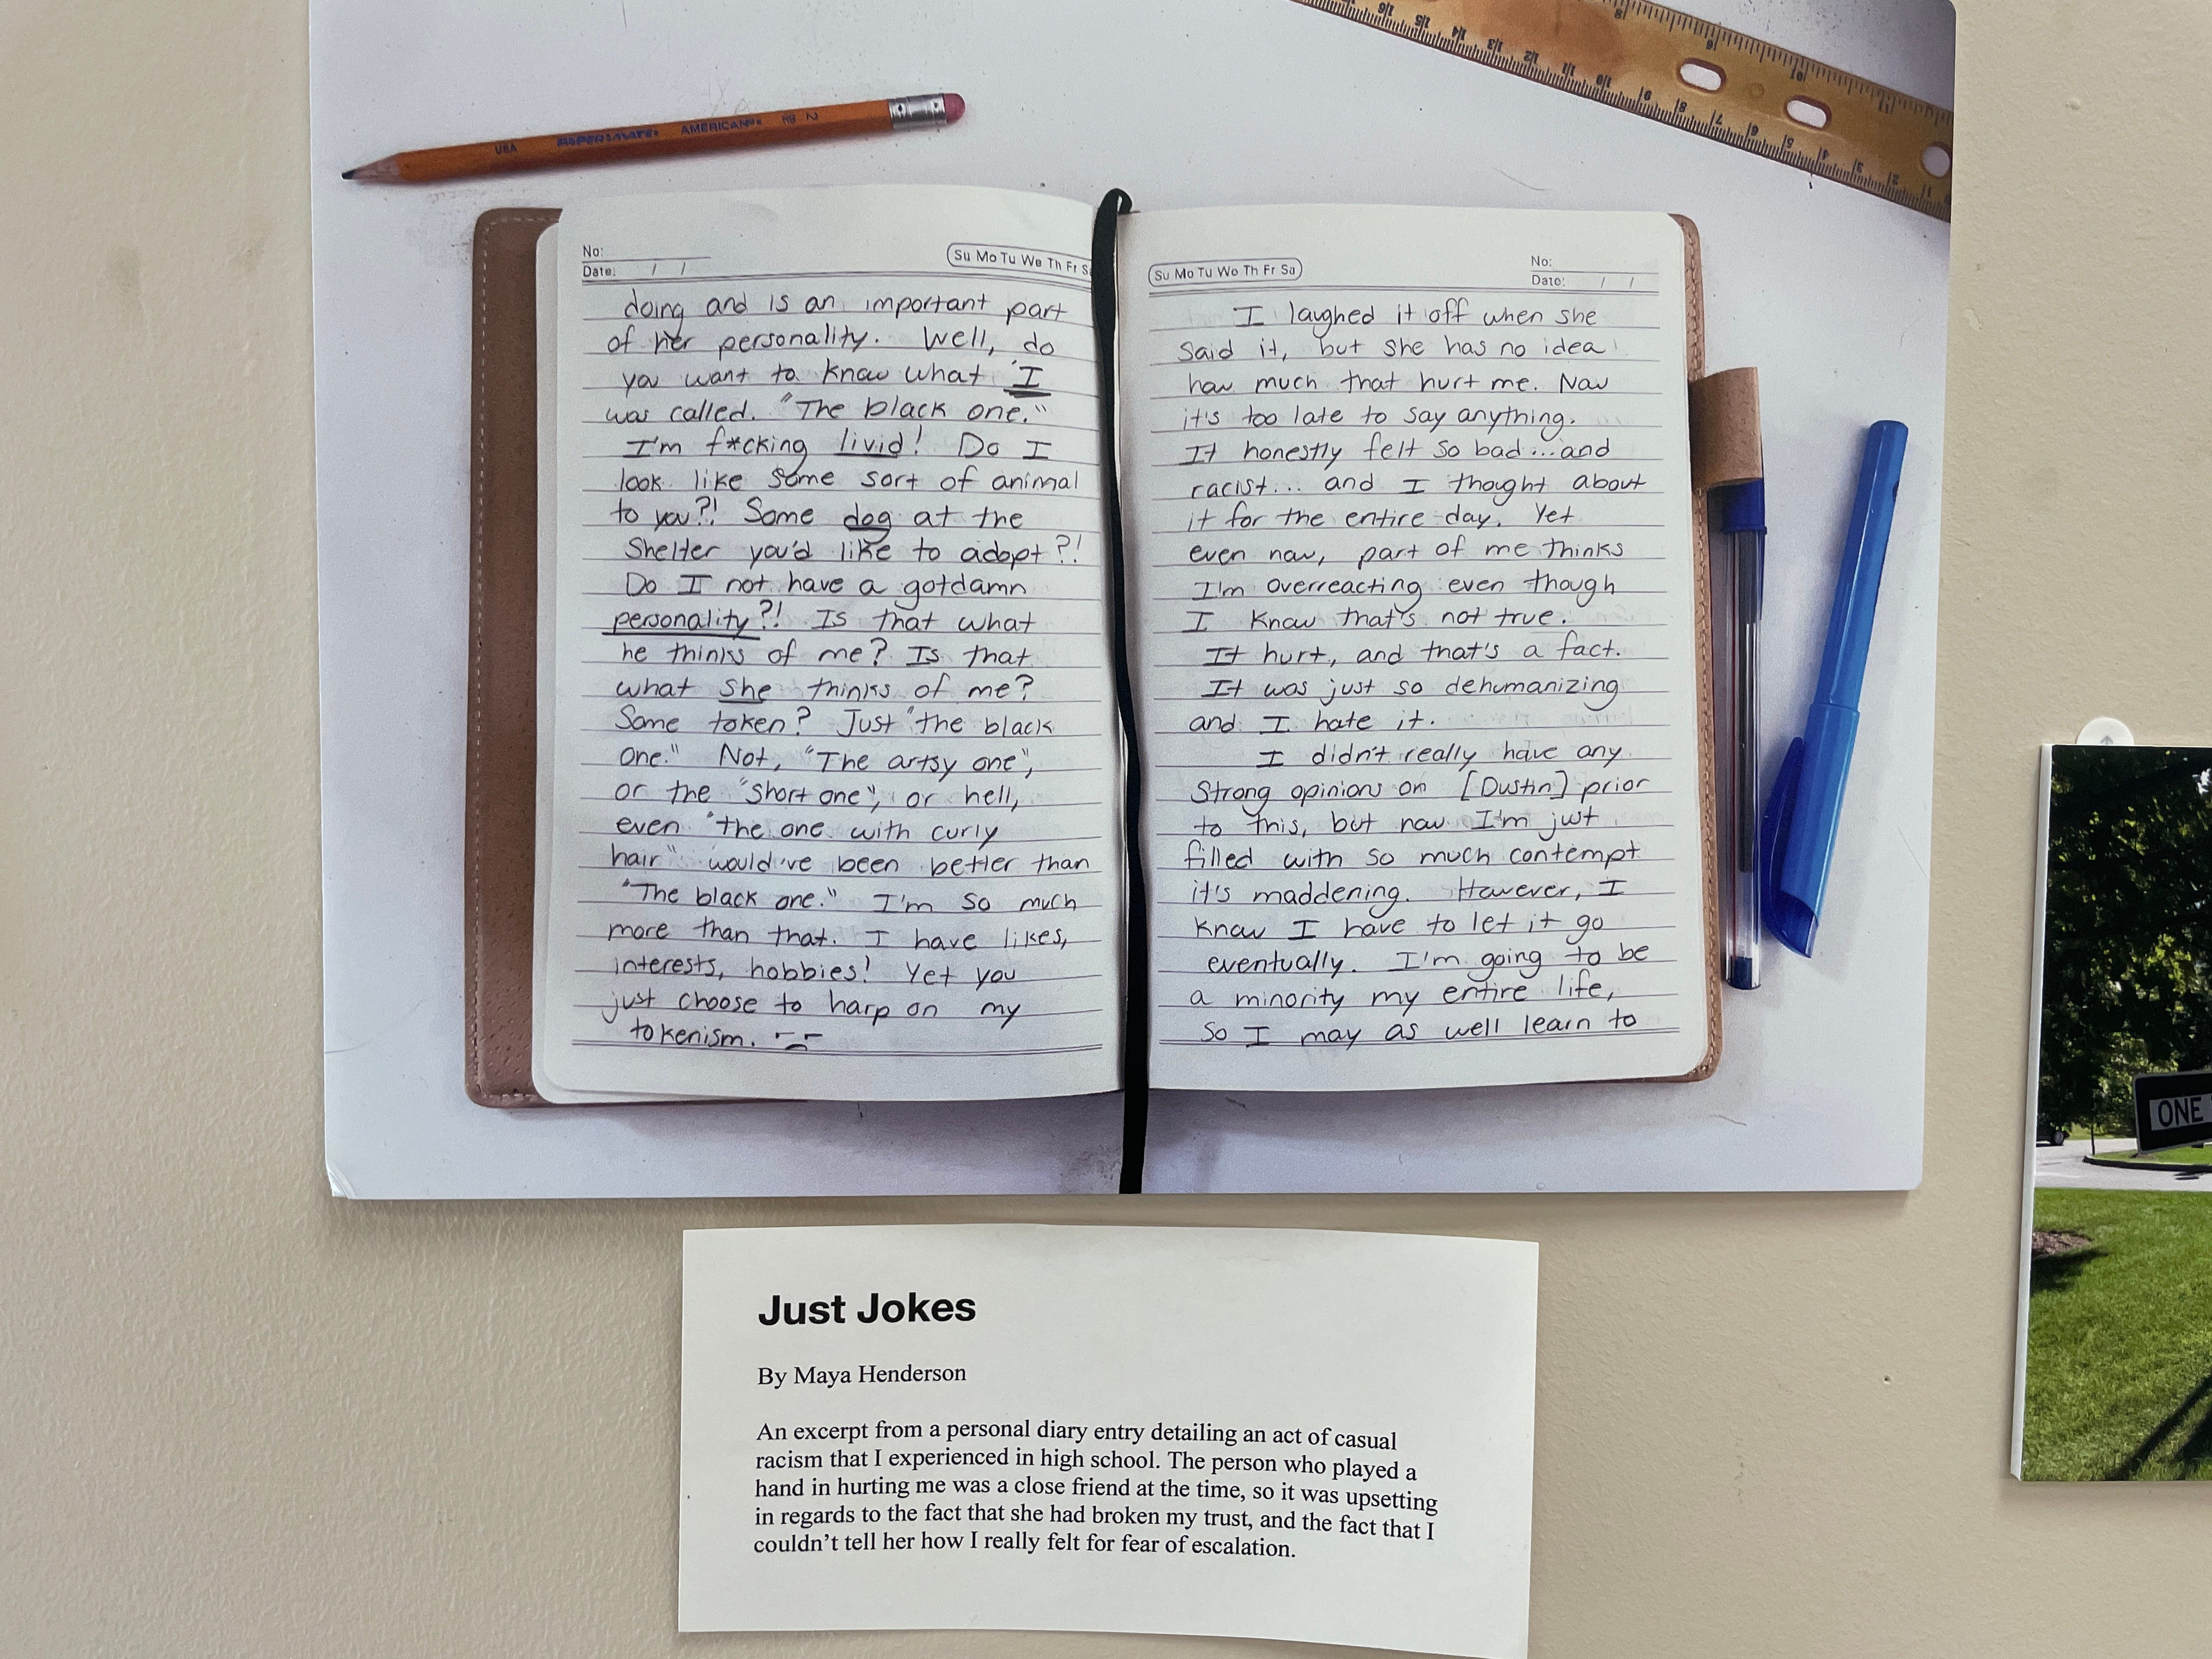 USA PAPER MATE AMERICAN HB 2
No:
Date: / /
Su Mo Tu We Th Fr Sa
doing and is an important part
of her personality. Well, do
you want to know what "I
was called. "The black one."
I'm f*cking livid! Do I
look like some sort of animal
to you?! Some dog at the
Shelter you'd like to adopt?!
Do I not have a gotdamn
personality?! Is that what
he thinks of me? Is that
what she thinks of me?
Some token? Just "the black
one." Not, "The artsy one",
or the "short one", or hell,
even "the one with curly
hair" would've been better than
"The black one." I'm so much
more than that. I have likes,
interests, hobbies! Yet you
just choose to harp on my
tokenism.
Su Mo Tu We Th Fr Sa
No:
Date: / /
I laughed it off when she
said it, but she has no idea
how much that hurt me. Now
it's too late to say anything.
It honestly felt so bad...and
racist... and I thought about
it for the entire day. Yet
even now, part of me thinks
I'm overreacting even though
I know that's not true.
It hurt, and that's a fact.
It was just so dehumanizing
and I hate it.
I didn't really have any
Strong opinions on [Dustin] prior
to this, but now I'm just
filled with so much contempt
it's maddening. However, I
know I have to let it go
eventually. I'm going to be
a minority my entire life,
so I may as well learn to
ONE
Just Jokes
By Maya Henderson
An excerpt from a personal diary entry detailing an act of casual
racism that I experienced in high school. The person who played a
hand in hurting me was a close friend at the time, so it was upsetting
in regards to the fact that she had broken my trust, and the fact that I
couldn't tell her how I really felt for fear of escalation.